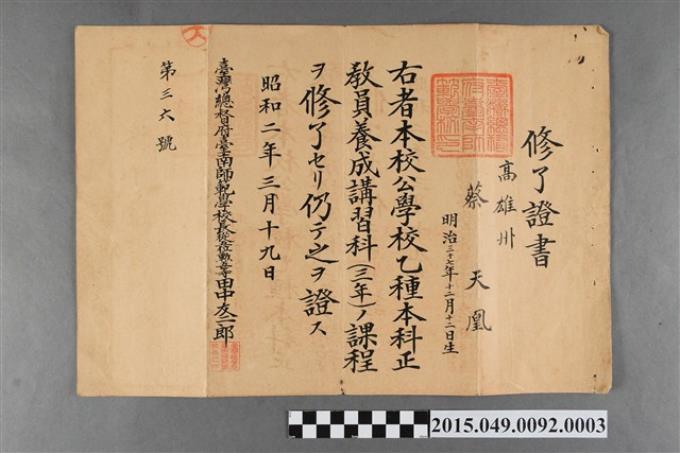 修了證書
高雄州
蔡天凰
明治三十七年十二月十二日生
右者本校公學校乙種本科正
敎員養成講習科(三年)ノ課程
ヲ修了セリ仍テ之ヲ證ス
昭和二年三月十九日
臺灣總督府臺南師範學校長從六位勳六等田中友二郎
第三六號
2015.049.0092.0003